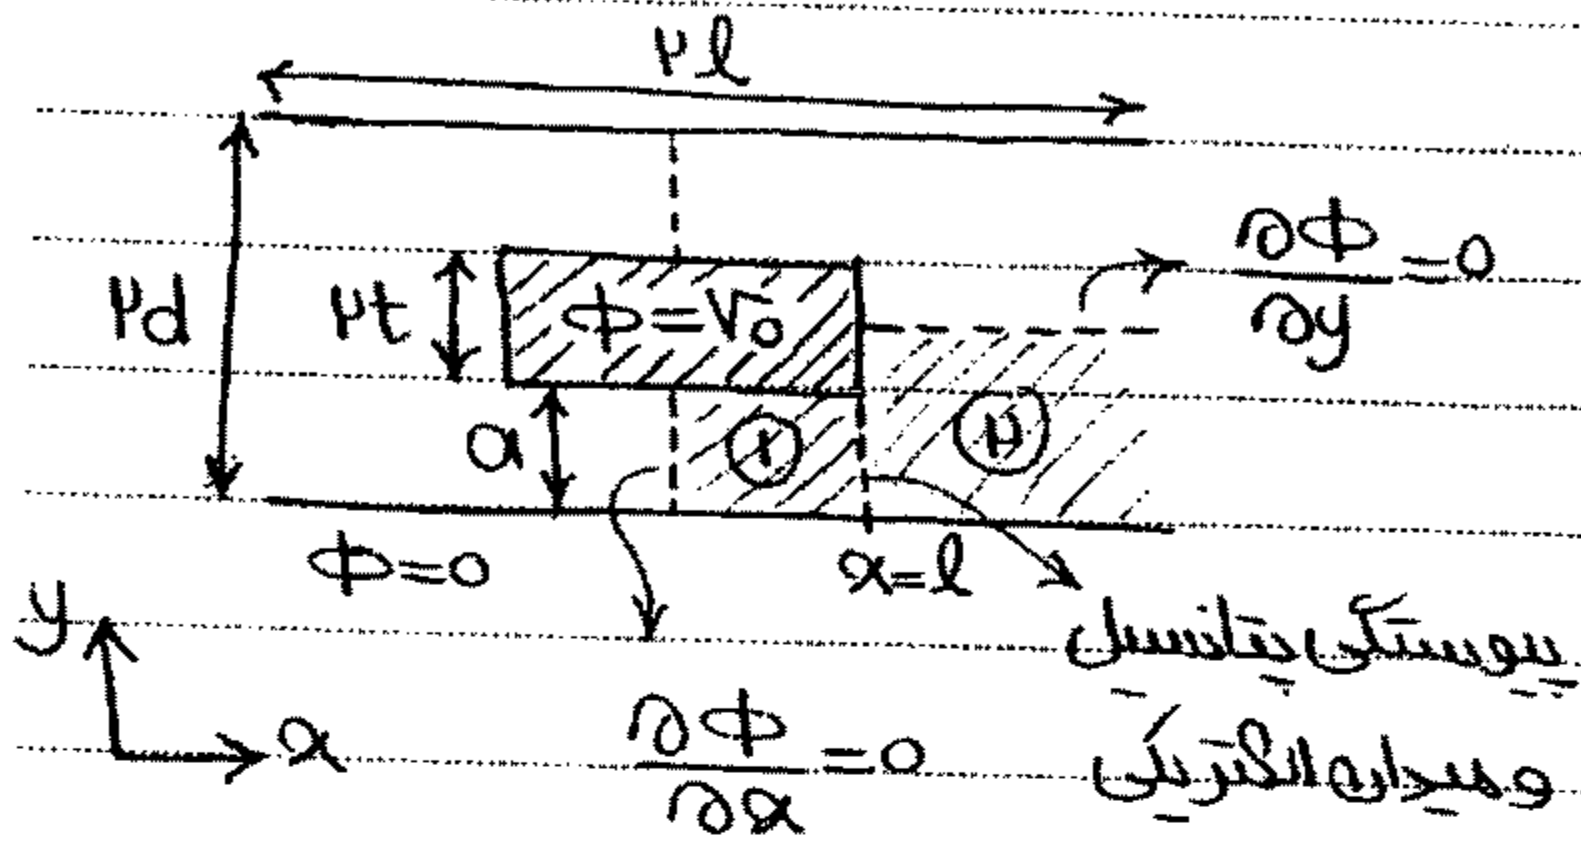 ۲l
۲d
۲t
Φ=V₀
∂Φ/∂y=0
a
①
②
Φ=0
x=l
y
x
∂Φ/∂x=0
پیوستگی پتانسیل
و میدان الکتریکی